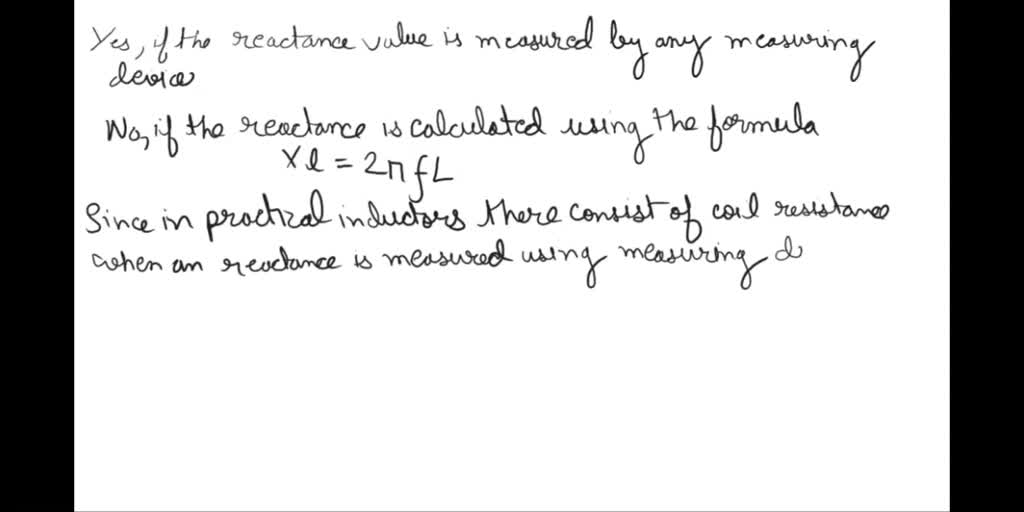 Yes, if the reactance value is measured by any measuring
device
No, if the reactance is calculated using the formula
Xl = 2π fL
Since in practical inductors there consist of coil resistance
when an reactance is measured using measuring d